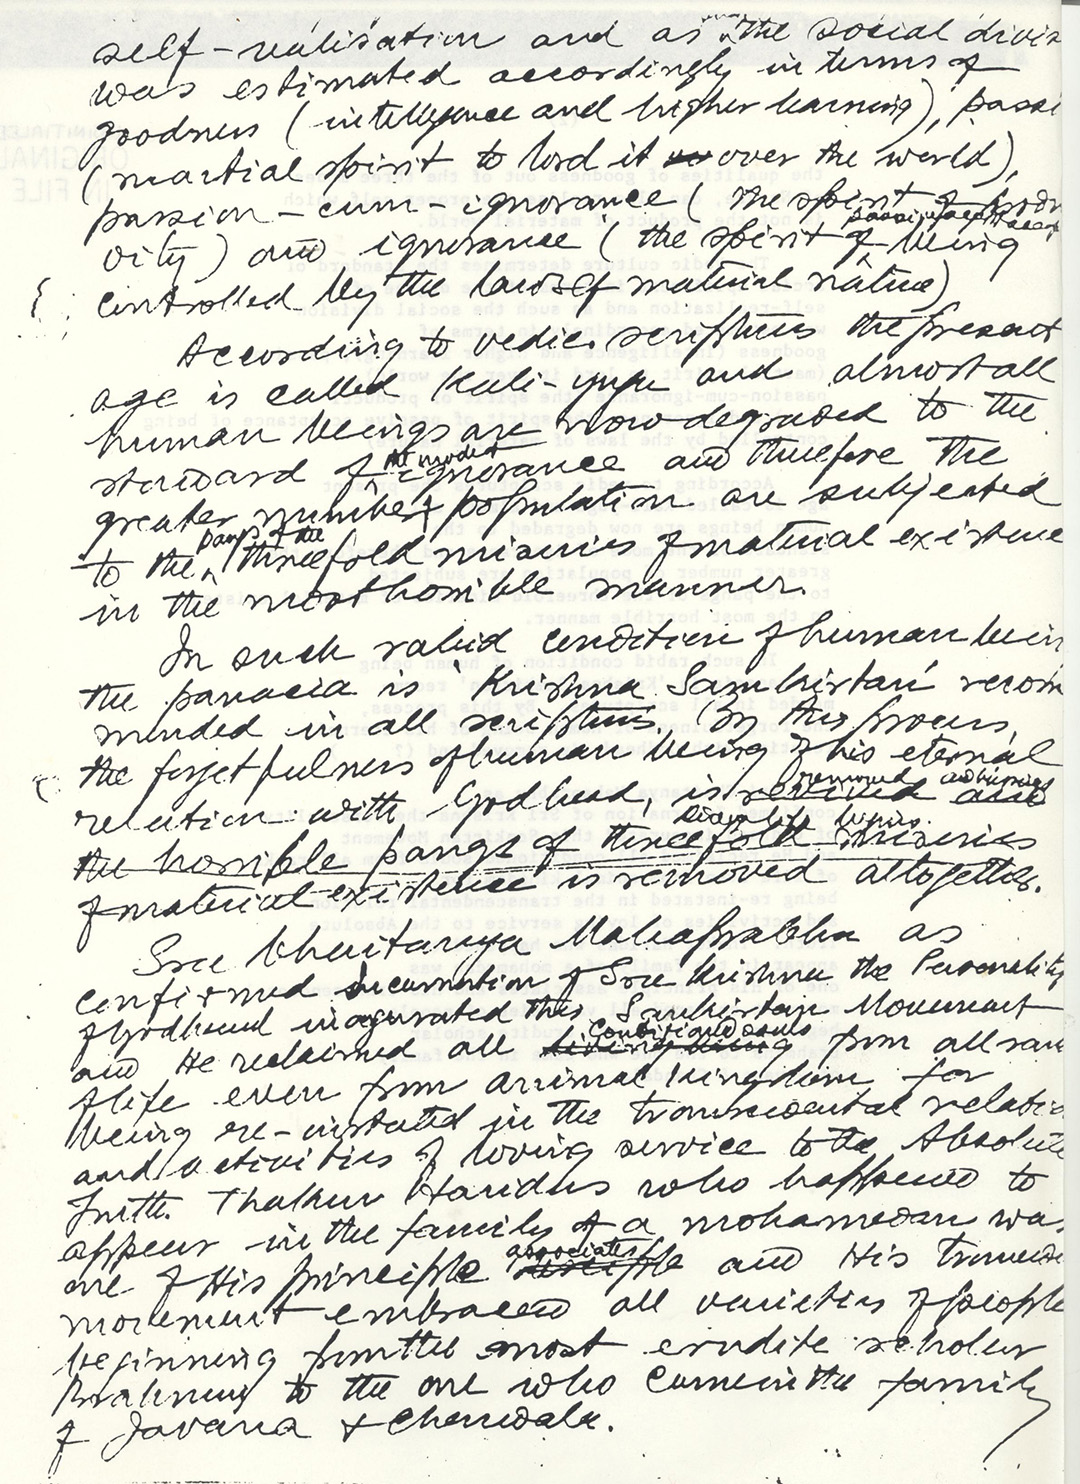 self-realisation and as such the social divis
was estimated accordingly in terms of
goodness (intelligence and higher learning), passi
(martial spirit to lord it over the world),
passion-cum-ignorance (the spirit of produ
vity) and ignorance (the spirit of passive acceptance being
controlled by the laws of material nature)
According to vedic scriptures the present
age is called Kali-yuga and almost all
human beings are now degraded to the
standard of the mode of ignorance and therefore the
greater number of population are subjected
to the pangs of the threefold miseries of material existence
in the most horrible manner.
In such rabid condition of human bein
the panacia is 'Krishna Samkirtan' recom
mended in all scriptures. By this process,
the forgetfulness of human being of his eternal
relation with Godhead, is removed and
the horrible pangs of threefold miseries
of material existence is removed altogether.
Sree Chaitanya Mahaprabhu as
confirmed incarnation of Sree Krishna the Personality
of Godhead inagurated this Samkirtan Movement
and He reclaimed all conditioned souls from all ran
of life even from animal kingdom, for
being re-instated in the transcendental relatio
and activities of loving service to the Absolute
Truth. Thakur Haridas who happened to
appear in the family of a mohamedan was
one of His principle associates and His transcende
movement embraced all varieties of people
beginning from the most erudite scholar
Brahmins to the one who came in the family
of Javana & Chandala.